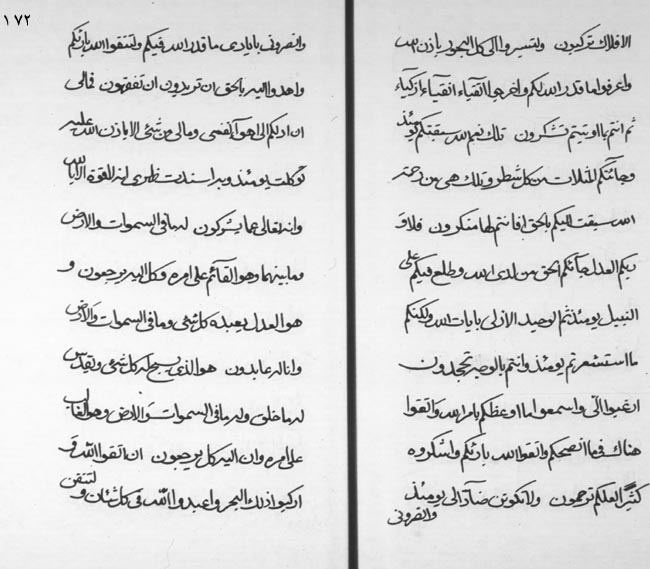 الافلاك تركبون ولتسيروا الى كل البحور باذن الله
واعرفوا ما قدر الله لكم واخرجوا اتقياء انقياء ازكياء
ثم انتم بما اوتيتم تشكرون تلك نعم الله سبقتكم يومئذ
وجائتكم المثلات من كل شطر وتلك هي من رحمة
الله سبقت اليكم بالحق افانتم لها منكرون فلا و
ربكم العدل جائكم الحق من لدى الله وطلع فيكم على
النبيل يومئذ ثم الوحيد الازلى بايات الله ولكنكم
ما استشعرتم يومئذ وانتم بالوحيد تجحدون
ارغبوا الى واسمعوا ما اوعظكم بامر الله واتقوا
هناك فيما انصحكم واتقوا الله بارئكم واشكروه
كثيرا لعلكم ترحمون ولا تكونن ضآدا لى يومئذ
وانصرونى
١٧٢
وانصرونى بايادى ما قدر الله فيكم ولتتقوا الله بارئكم
واهدوا اليه بالحق ان تريدون ان تفقهون فمالى
ان ادلكم الى اهوآء نفسى ومالى من شئ الا باذن الله عليه
توكلت يومئذ وبه اسندت ظهرى انه لا قوة الا بالله
وانه تعالى عما يشركون له ما فى السموات والارض
وما بينهما وهو القآئم على امره وكل اليه يرجعون و
هو العدل يعبده كل شئ وما فى السموات والارض
وانا له عابدون هو الذى يسبح له كل شئ وتقدس
له ما خلق وله ما فى السموات والارض وهو الغالب
على امره وان اليه كل يرجعون ان اتقوا الله و
اركبوا ذلك البحر واعبدوا الله فى كل شئان و
لتتقن